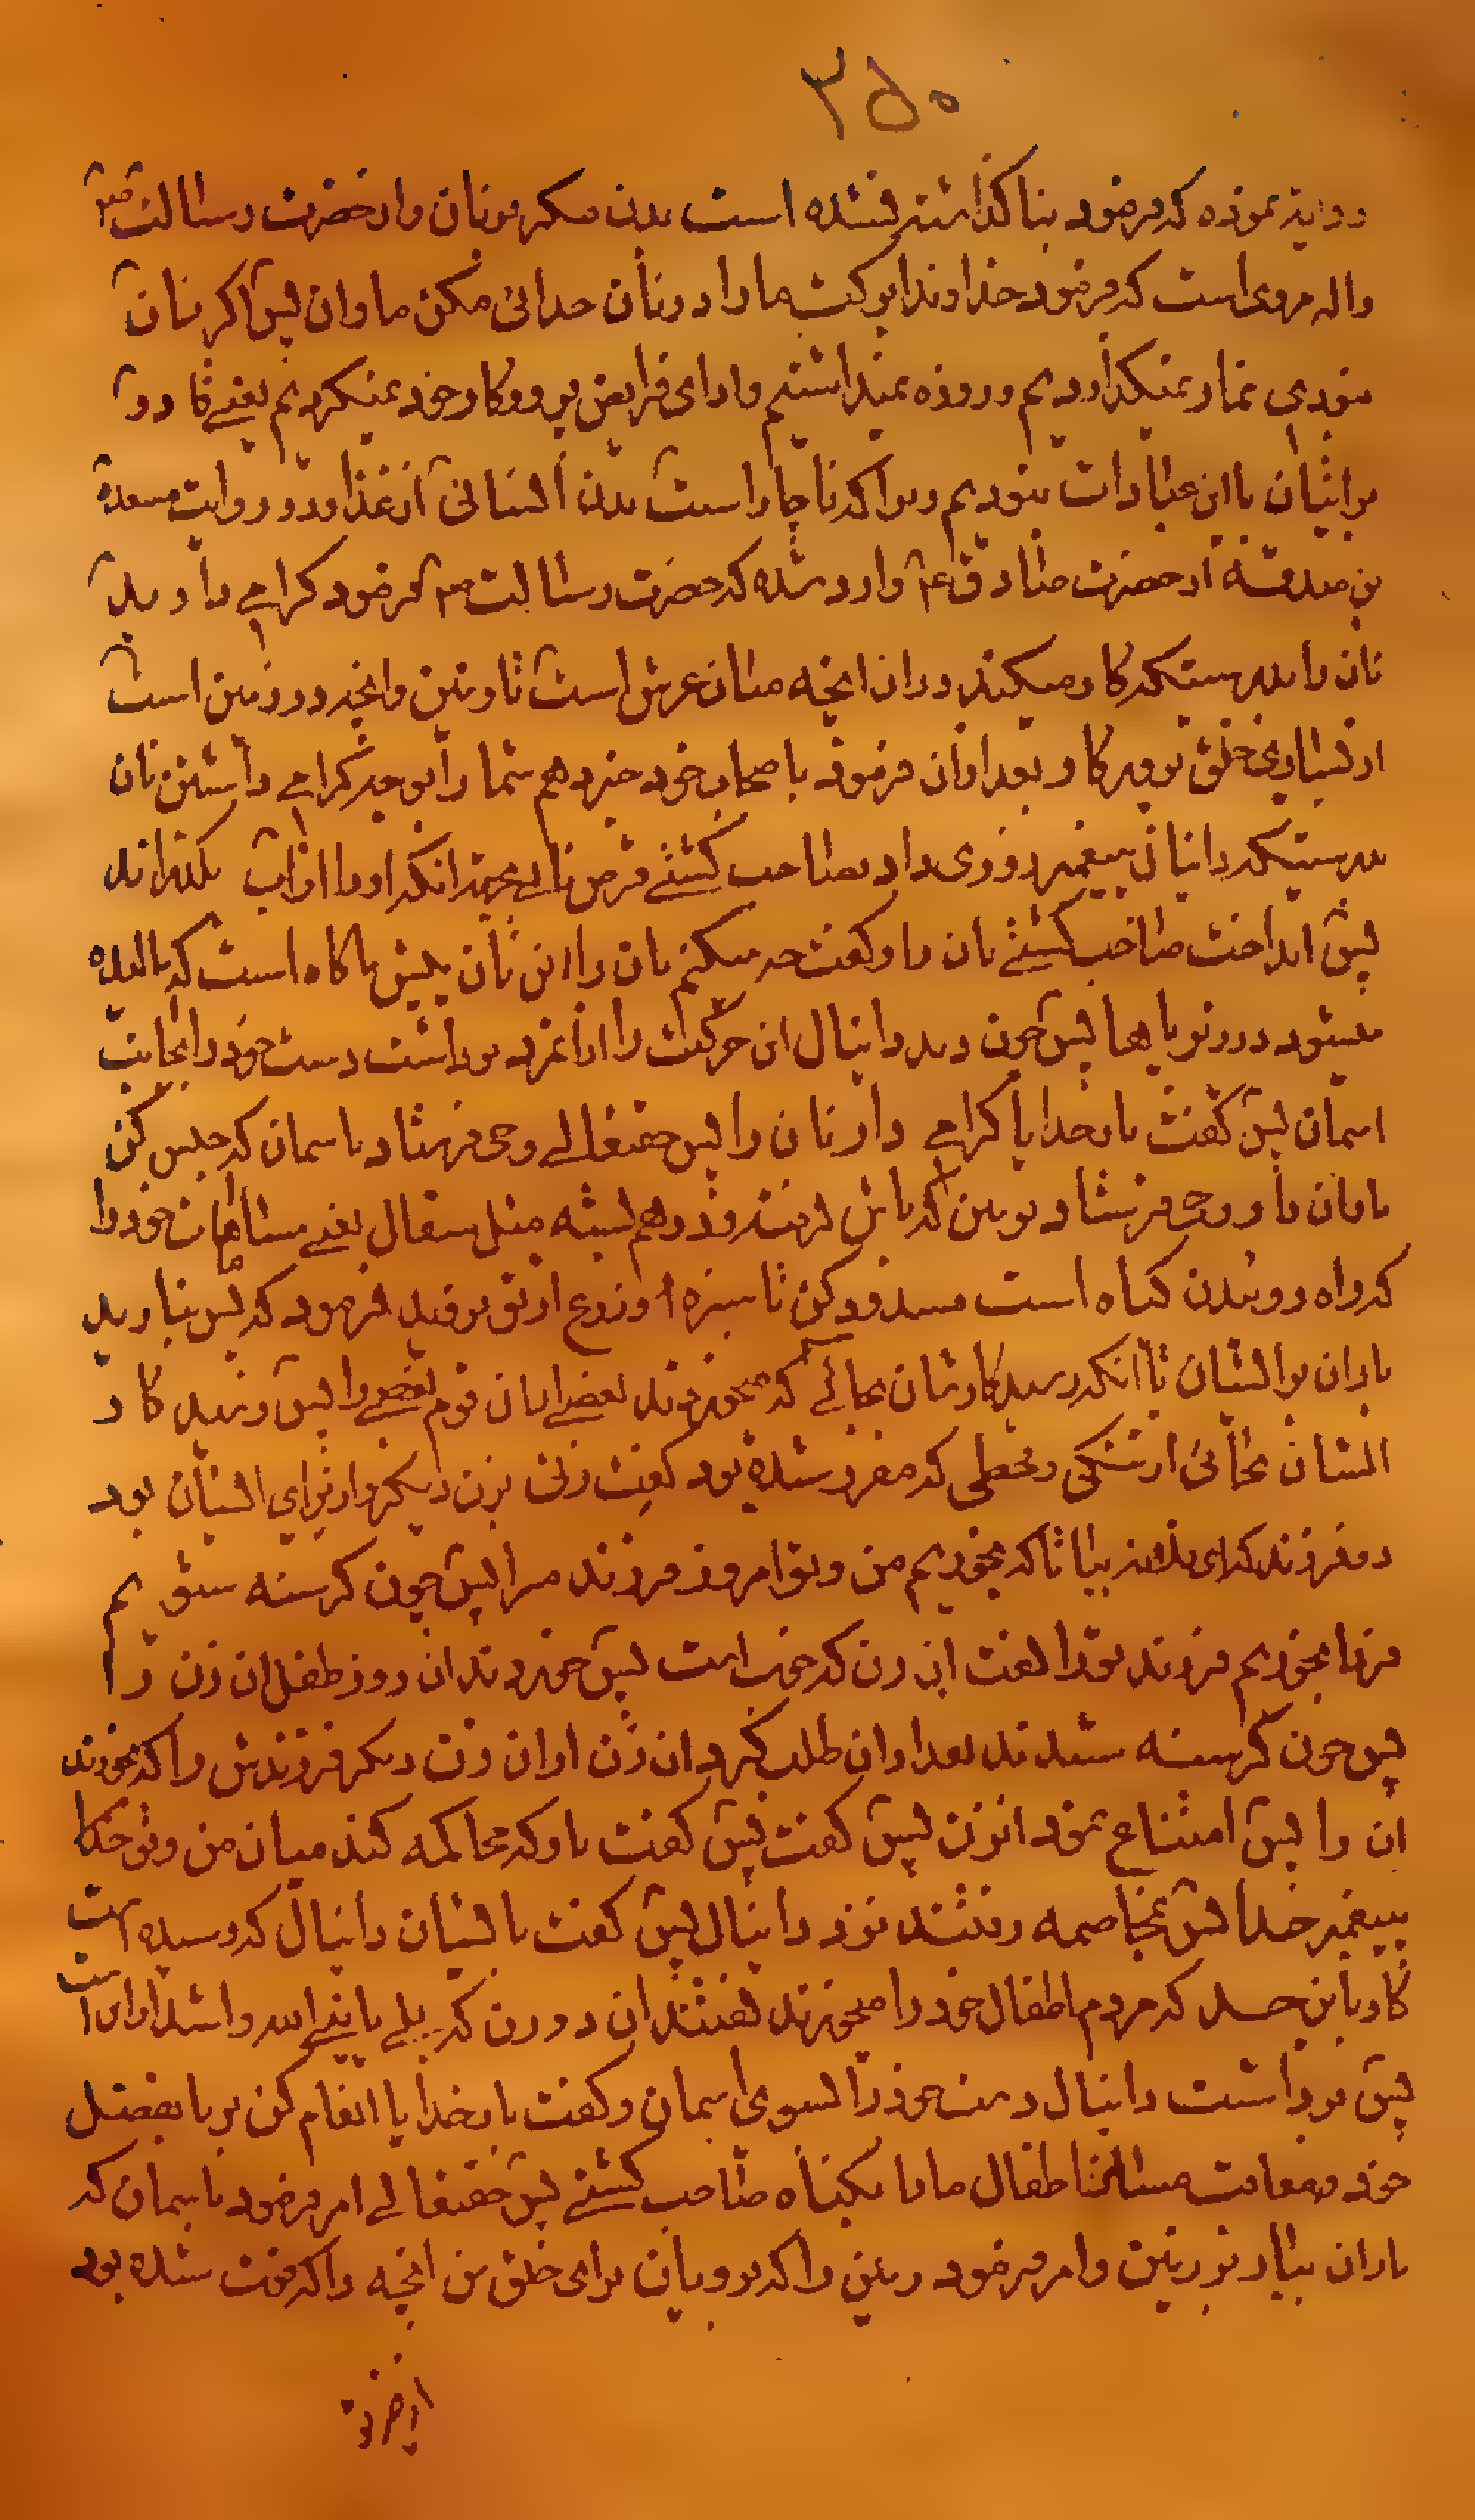 ۲۵۰
روایة نموده که فرمود بنا گذاشته نشده است بدن مگر بر نان و از حضرت رسالت ص
واله مروی است که فرمود خداوندا برکت ده ما را در نان و جدائی مکن ما و ان پس اگر نان
نبودی نماز نمیگذاردیم و روزه نمیداشتیم و ادای فرایض پروردگار خود نمیکردیم یعنی قادر
برایشان با این عبادات نبودیم چرا که ناچار است بدن انسانی از غذا و در روایت مسعدة
بن صدقه از حضرت صادق ع وارد شده که حضرت رسالت ص فرمود گرامی دارید
نان را بدرستیکه کار میکند در ان انچه میان عرش است تا زمین و انچه در زمین است
از بسیاری خلق پروردگار بعد از ان فرمود باصحاب خود خبر دهم شما را بوجه گرامی داشتن نان
بدرستیکه دانیال پیغمبر روزی داد بصاحب کشتی قرص نانی بجهة انکه او را از اب بگذراند
پس انداخت صاحب کشتی نان را و گفت چه میکنم نان را این نان پیش ما کاه است که مالیده
میشود در زیر پاها پس چون دید دانیال این حرکت را از انمرد برداشت دست خود را بجانب
اسمان پس گفت بار خدایا گرامی دار نان را پس حقتعالی وحی فرستاد باسمان که حبس کن
باران را و وحی فرستاد بزمین که باش در هم بسته مثل سفال یعنی مسامات خود را
که راه روئیدن گیاه است مسدود کن تا سبزه و زرع از تو نروید فرمود که پس نبارید
باران بر ایشان تا انکه رسید کارشان بجائی که میخوردند بعضی از ان قوم بعضی را پس رسید کار
ایشان بجائی از تنگی و قحطی که مقرر شده بود گفت زنی بزن دیگر و از برای ایشان بود
دو فرزند که ای فلانه بیا تا که بخوریم من و تو امروز فرزند مرا پس چون گرسنه شویم
فردا بخوریم فرزند تو را گفت ان زن که خوب است پس خوردند ان روز طفل ان زن را
پس چون گرسنه شدند بعد از ان طلب کرد ان زن از ان زن دیگر فرزندش را که بخورند
ان را پس امتناع نمود انزن پس گفت پس گفت باو که محاکمه کند میان من و تو حکم
پیغمبر خدا پس بمخاصمه رفتند نزد دانیال پس گفت بایشان دانیال که رسیده است
کار باین حد که مردم اطفال خود را میخورند گفتند ان دو زن که بلی یا نبی الله و اشد از این است
پس برداشت دانیال دست خود را بسوی اسمان و گفت بار خدایا انعام کن بر ما بفضل
خود و معاقب مساز اطفال ما را بگناه صاحب کشتی پس حقتعالی امر فرمود باسمان که
باران ببار بر زمین و امر فرمود زمین را که برویان برای خلق من انچه را که فوت شده بود